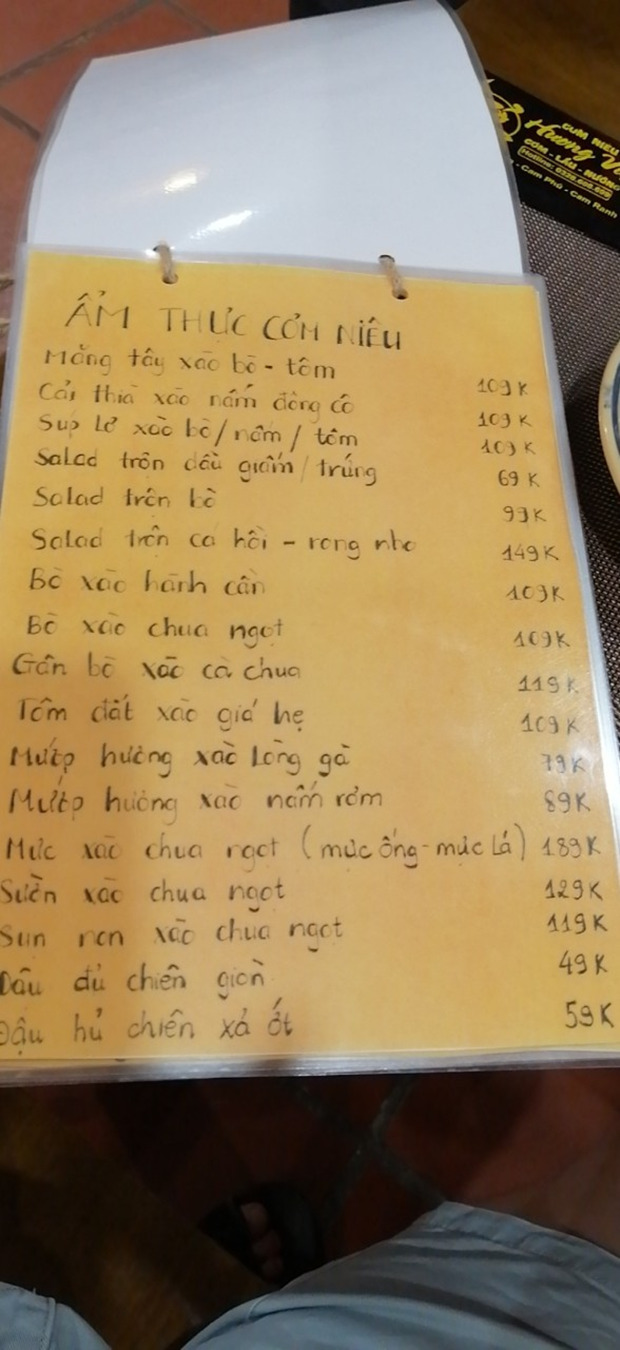 CƠM NIÊU
Hương V
CƠM - LẨU - NƯỚNG
Hotline:
- Cam Phú - Cam Ranh
ẨM THỰC CƠM NIÊU
Măng tây xào bò - tôm 109K
Cải thìa xào nấm đông cô 109K
Sup lơ xào bò / nấm / tôm 109K
Salad trộn dầu giấm / trứng 69K
Salad trộn bò 99K
Salad trộn cá hồi - rong nho 149K
Bò xào hành cần 109K
Bò xào chua ngọt 109K
Gân bò xào cà chua 119K
Tôm đất xào giá hẹ 109K
Mướp hương xào lòng gà 79K
Mướp hương xào nấm rơm 89K
Mực xào chua ngọt (mực ống - mực lá) 189K
Sườn xào chua ngọt 129K
Sụn non xào chua ngọt 119K
Đậu hủ chiên giòn 49K
Đậu hủ chiên xả ớt 59K